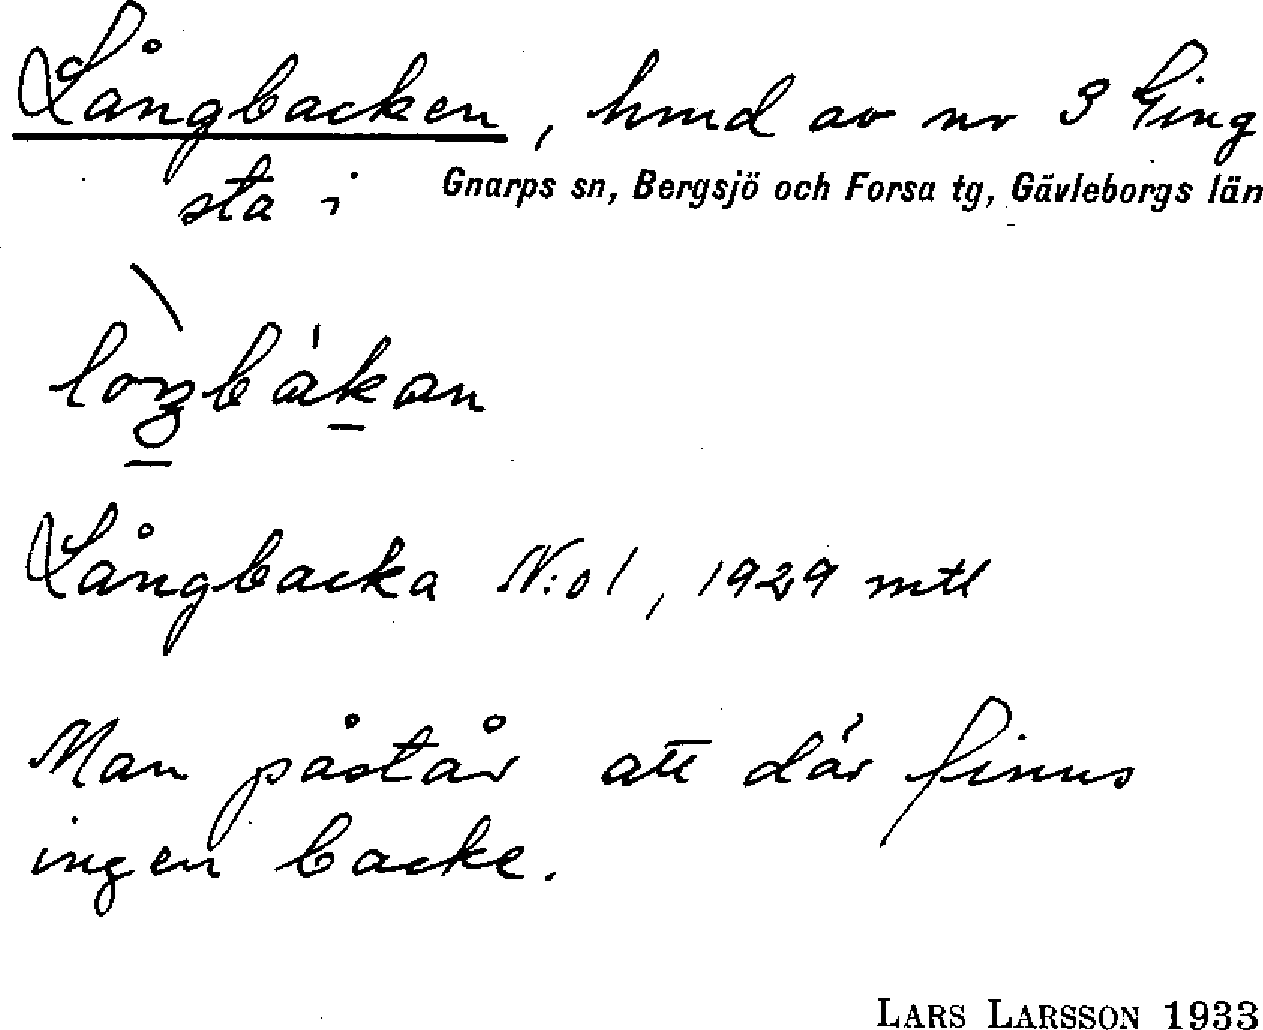 Långbacken, hmd av nr 3 Ging
sta i Gnarps sn, Bergsjö och Forsa tg, Gävleborgs län
Långbacka N:o 1, 1929 mtl
Man påstår att där finns
ingen backe.
LARS LARSSON 1933